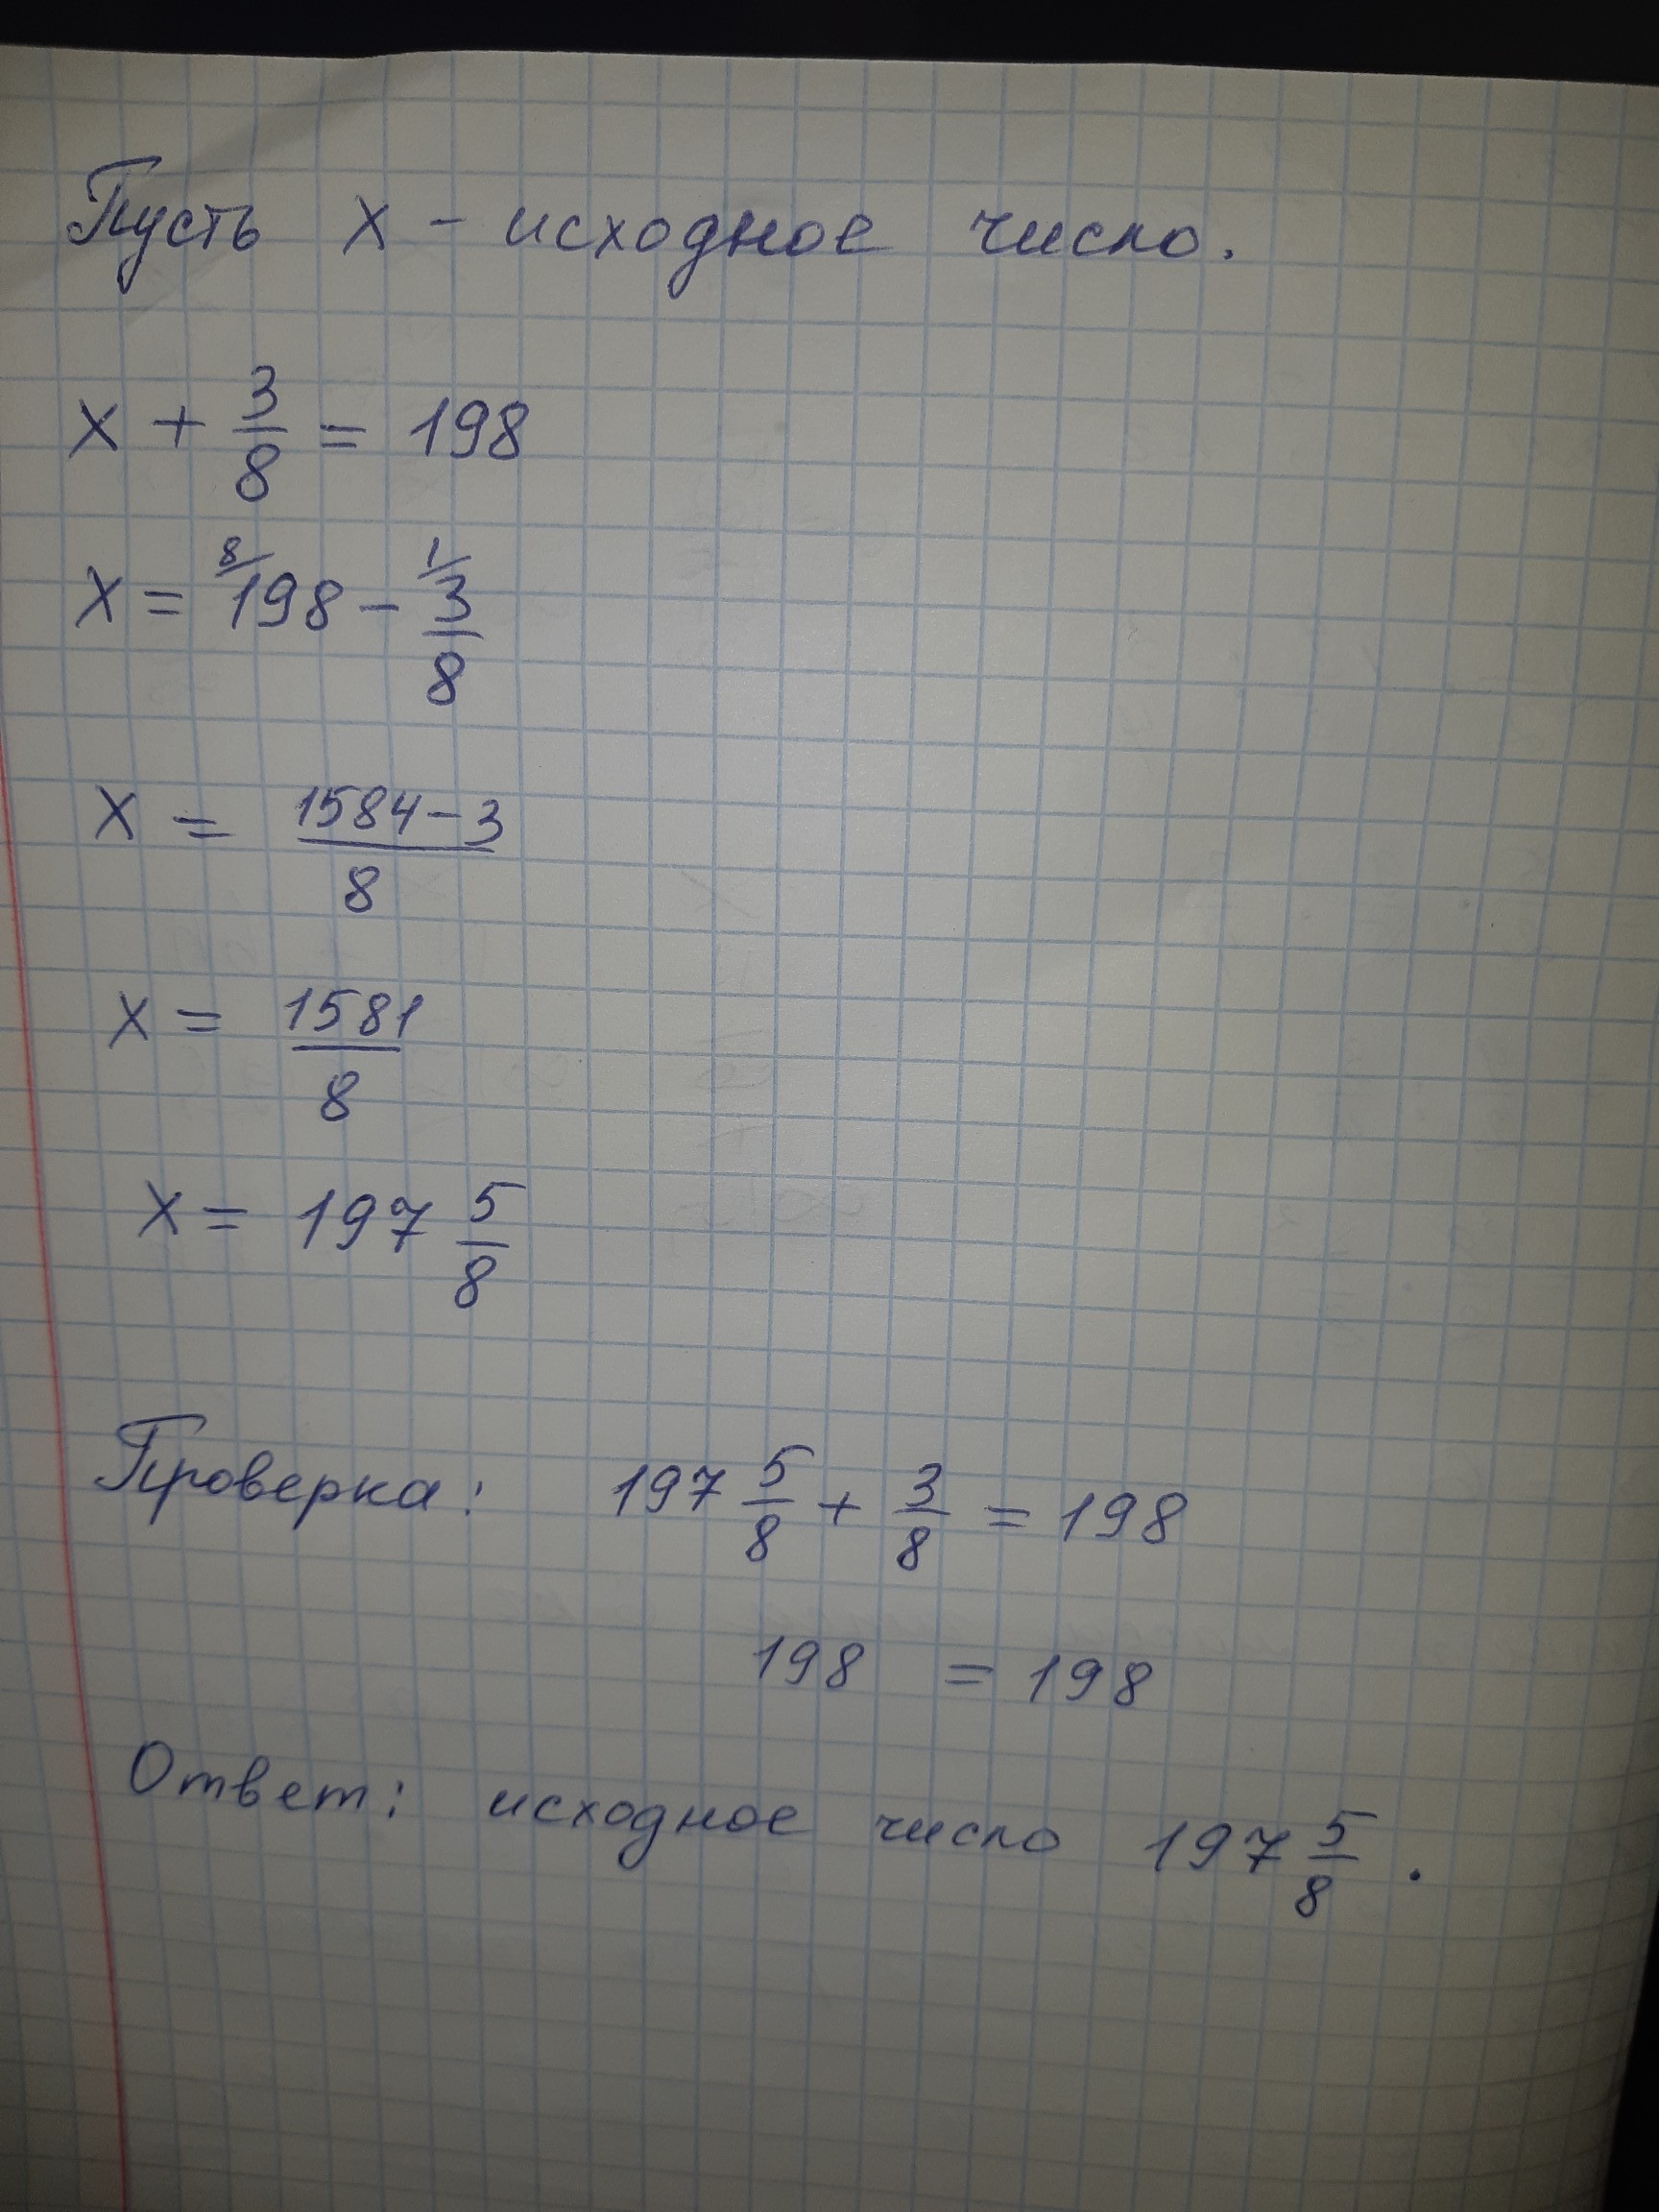 Пусть x - исходное число.
x + 3/8 = 198
x = ⁸⁄198 - ¹⁄3/8
x = 1584-3/8
x = 1581/8
x = 197 5/8
Проверка: 197 5/8 + 3/8 = 198
198 = 198
Ответ: исходное число 197 5/8.